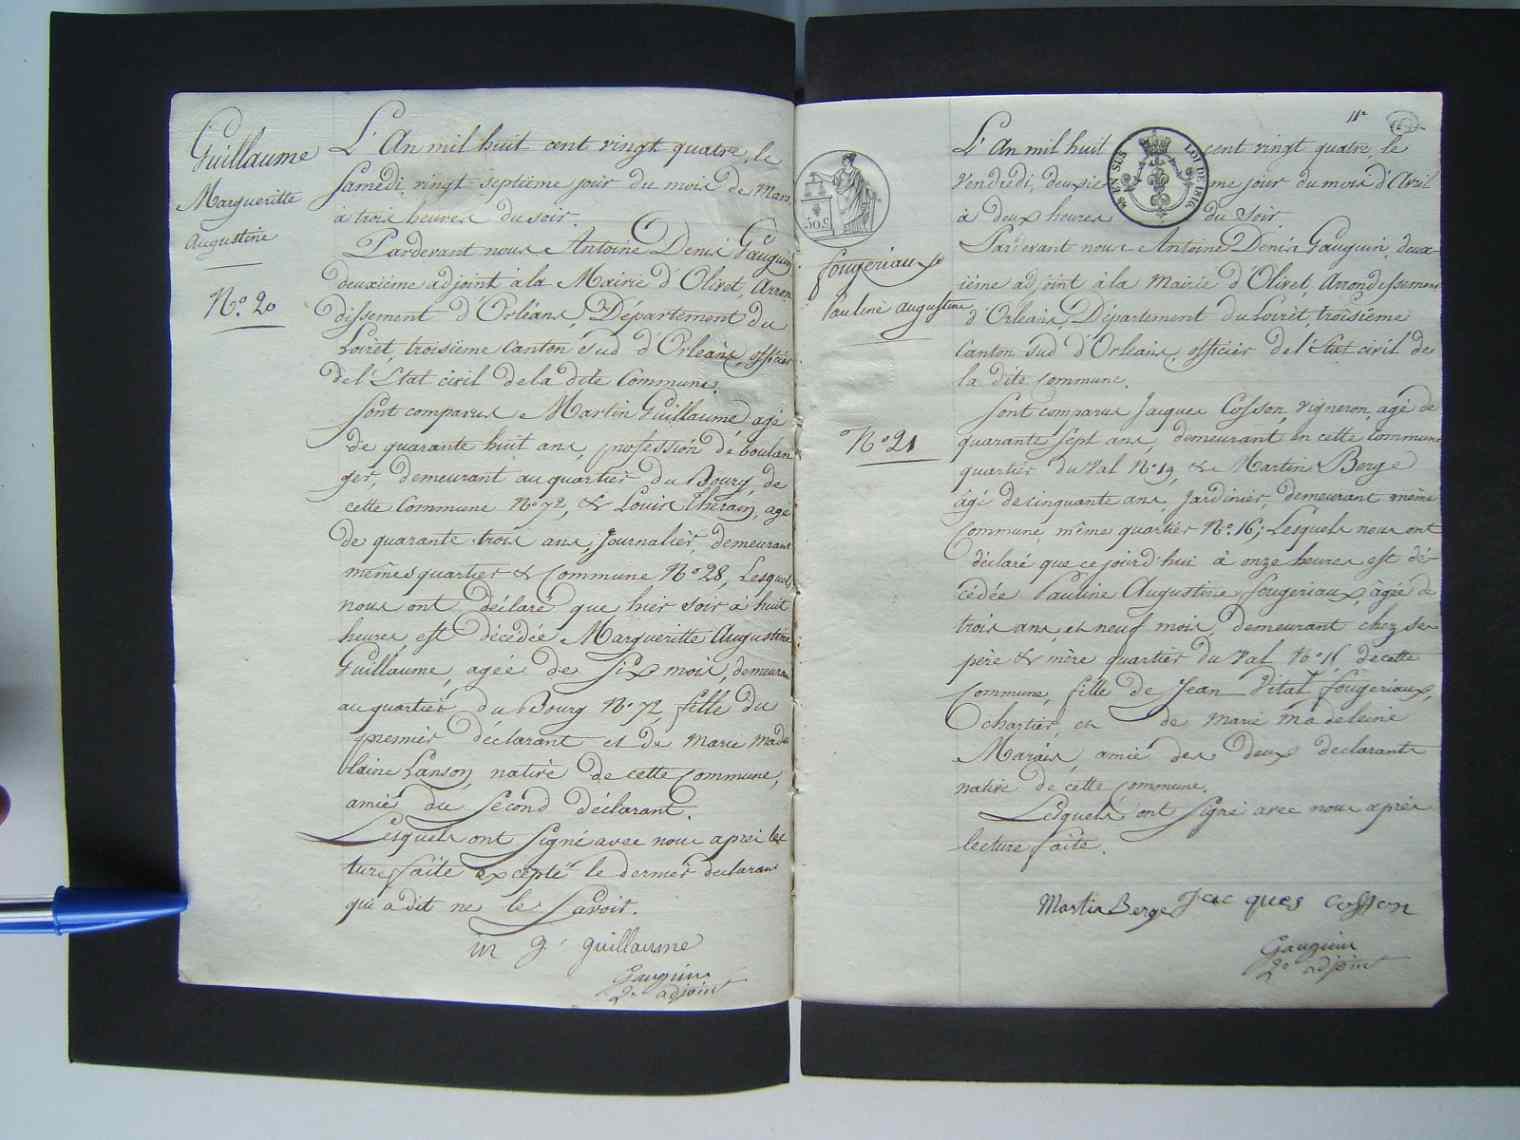 Guillaume
Margueritte
Augustine
N.o 20
L'An mil huit cent vingt quatre, le
Samedi, vingt septième jour du mois de Mars
à trois heures du soir.
Pardevant nous Antoine Denis Gauguin
deuxième adjoint à la Mairie d'Olivet, Arron
dissement d'Orléans, Département du
Loiret, troisième Canton sud d'Orléans, officier
de l'Etat civil de la dite Commune.
Sont comparus Martin Guillaume agé
de quarante huit ans, profession de boulan
ger, demeurant au quartier du Bourg, de
cette Commune N.o 72, & Louis Therain, agé
de quarante trois ans, Journalier, demeurant
mêmes quartier & Commune N.o 28, Lesquels
nous ont déclaré que hier soir à huit
heures, est décédée Margueritte Augustine
Guillaume, agée de Six mois, demeurant
au quartier du Bourg N.o 72, fille du
premier déclarant et de Marie Made
laine Lanson, native de cette Commune,
amie du second déclarant.
Lesquels ont signé avec nous après lec
ture faite excepté le dernier déclarant
qui a dit ne le Savoir.
guillaume
Gauguin
2e adjoint
11e
L'An mil huit cent vingt quatre, le
Vendredi, deuxième jour du mois d'Avril
à deux heures du Soir
TIM EN SUS
LOI DE 1816
50 C
Fougeriaux
Pauline Augustine
N.o 21
Pardevant nous Antoine Denis Gauguin, deux
ième adjoint à la Mairie d'Olivet, Arrondissement
d'Orléans, Département du Loiret, troisième
Canton Sud d'Orléans, officier de l'Etat civil de
la dite commune.
Sont comparus Jacques Cosson, Vigneron, agé de
quarante Sept ans, demeurant en cette Commune
quartier du Val N.o 19, & Martin Berge
âgé de cinquante ans, Jardinier, demeurant même
Commune, même quartier N.o 16; Lesquels nous ont
déclaré que ce jourd'hui à onze heures est dé-
cédée Pauline Augustine Fougeriaux, âgée de
trois ans, et neuf mois, demeurant chez ses
père & mère quartier du Val N.o de cette
Commune, fille de Jean Vital Fougeriaux,
chartier, et de Marie Madeleine
Marais, amie des deux déclarants
native de cette Commune.
Lesquels ont signé avec nous après
lecture faite.
Martin Berge Jacques cosson
Gauguin
2e adjoint